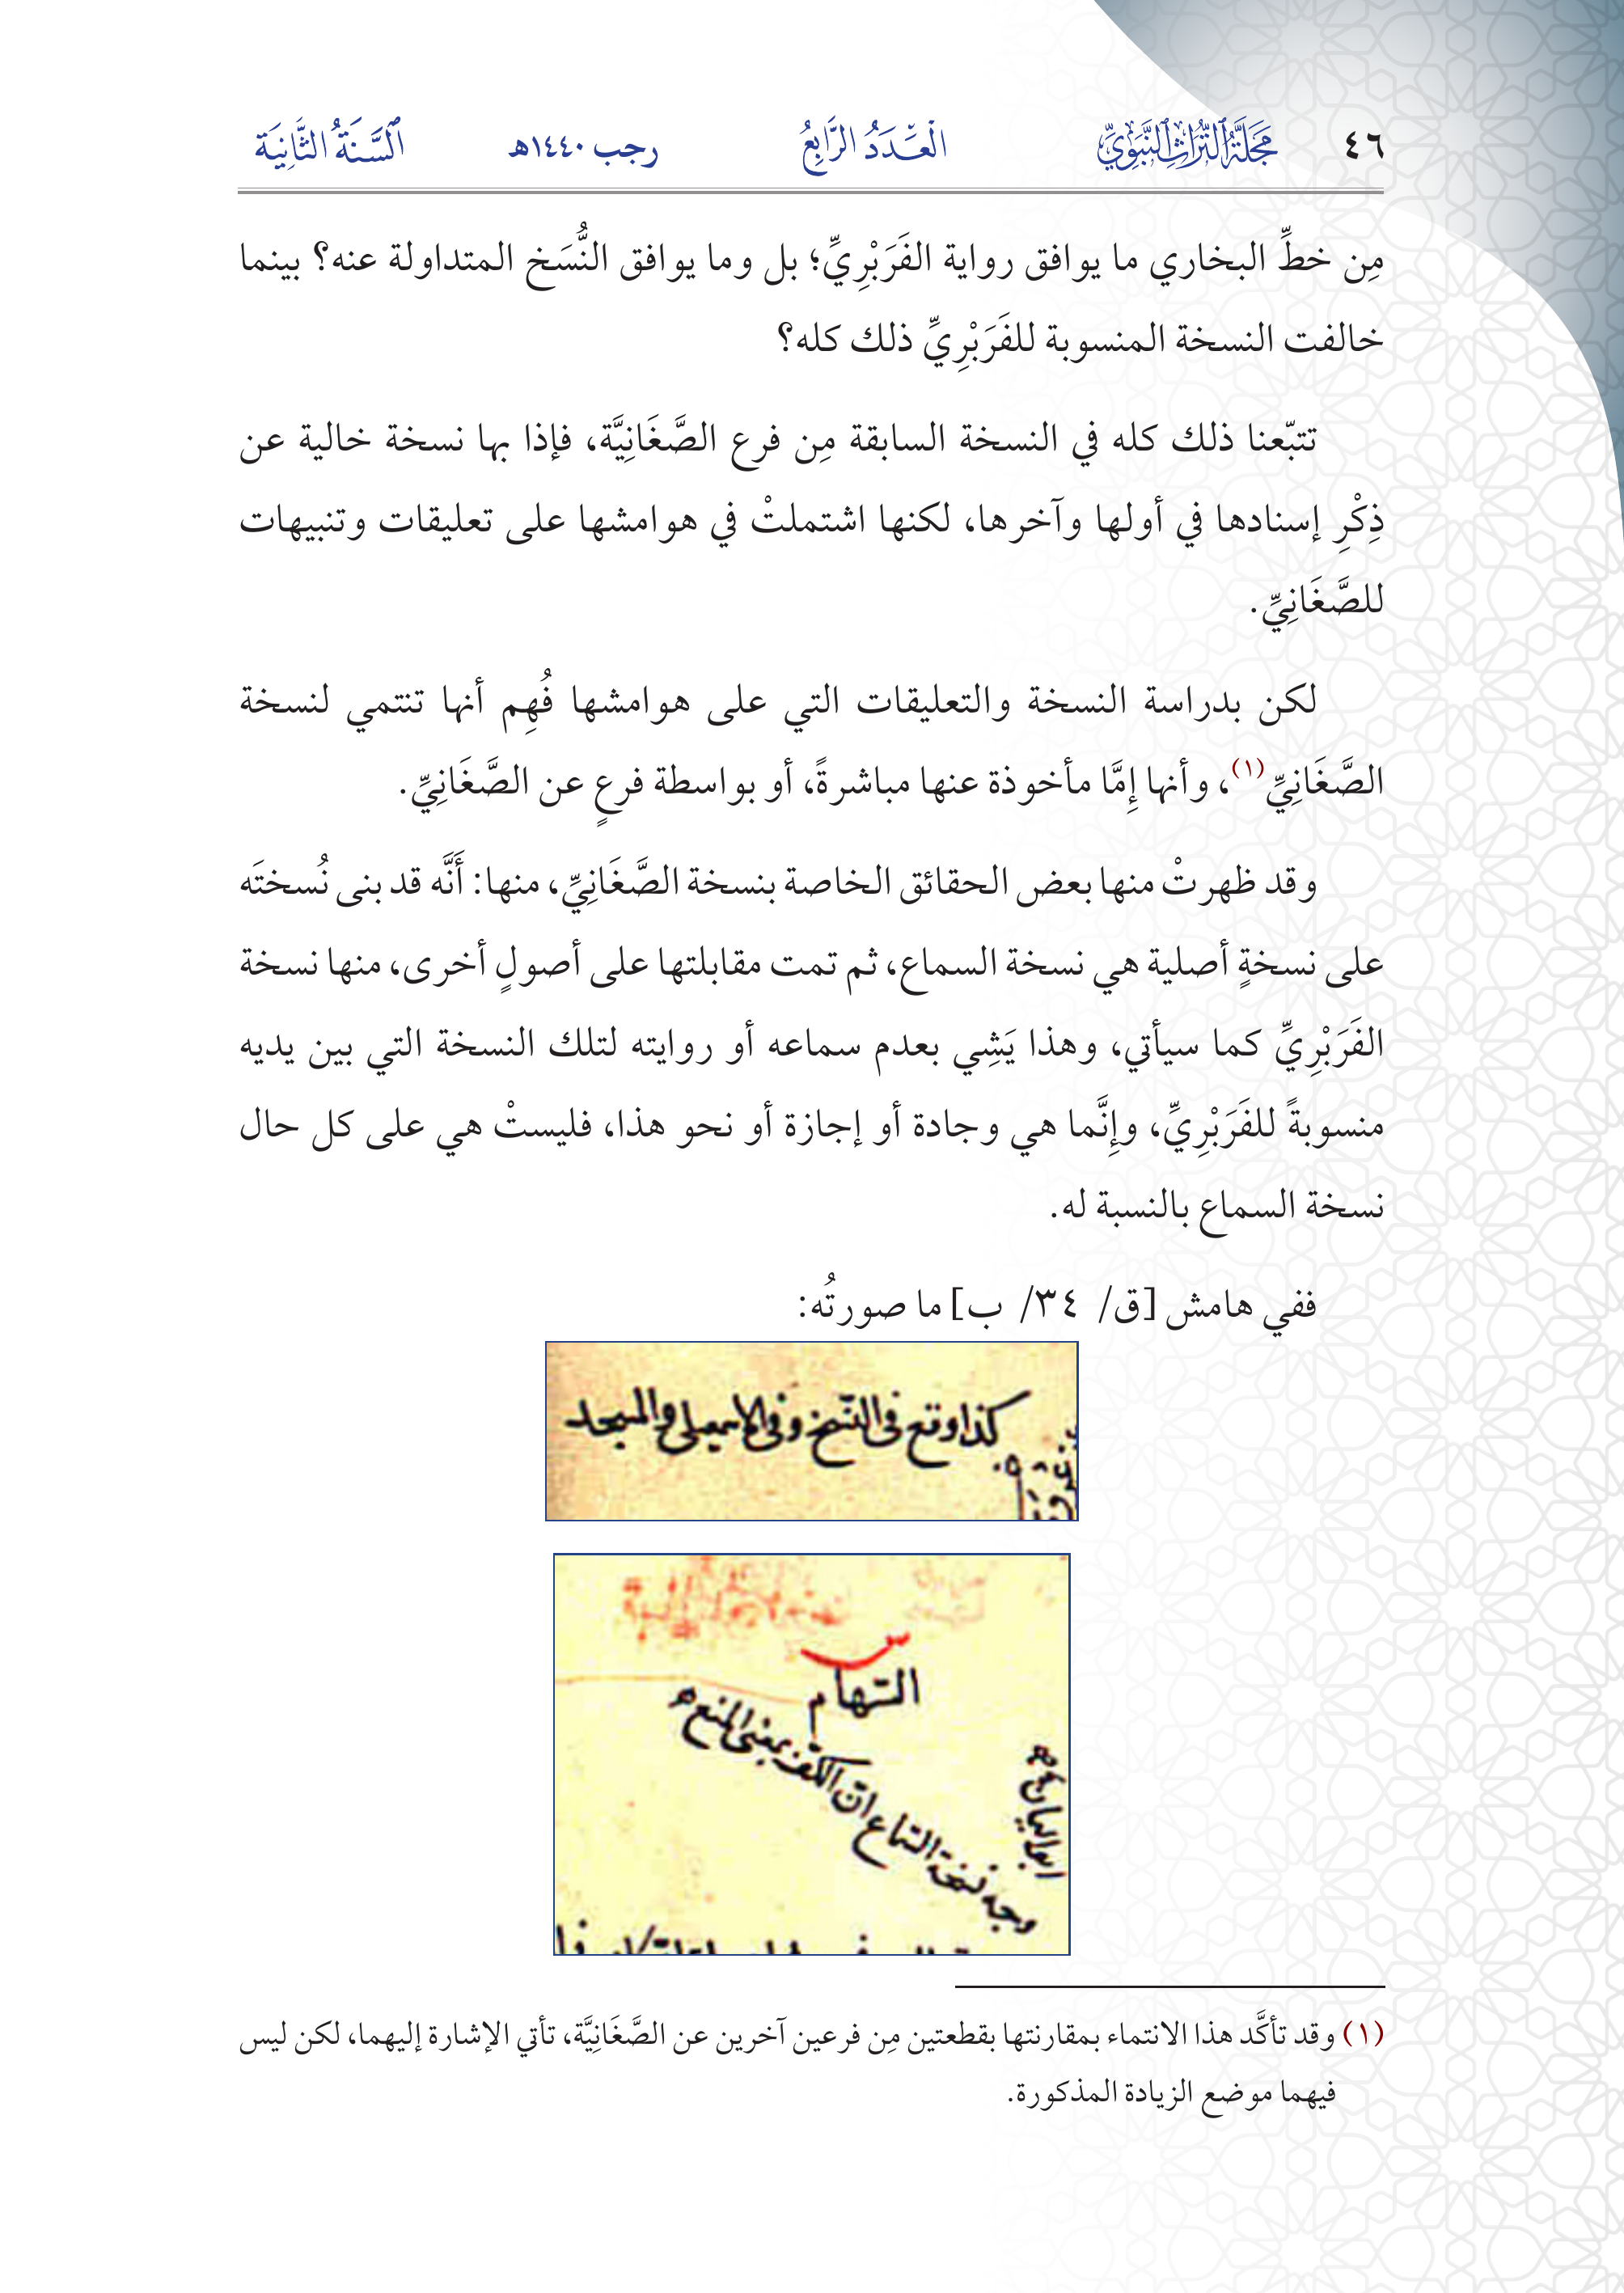 ٤٦ مَجَلَّةُ التُّرَاثِ النَّبَوِيِّ الْعَدَدُ الرَّابِعُ رجب ١٤٤٠هـ السَّنَةُ الثَّانِيَة
مِن خطِّ البخاري ما يوافق رواية الفَرَبْرِيِّ؛ بل وما يوافق النُّسَخ المتداولة عنه؟ بينما
خالفت النسخة المنسوبة للفَرَبْرِيِّ ذلك كله؟
تتبّعنا ذلك كله في النسخة السابقة مِن فرع الصَّغَانِيَّة، فإذا بها نسخة خالية عن
ذِكْرِ إسنادها في أولها وآخرها، لكنها اشتملتْ في هوامشها على تعليقات وتنبيهات
للصَّغَانِيِّ.
لكن بدراسة النسخة والتعليقات التي على هوامشها فُهِم أنها تنتمي لنسخة
الصَّغَانِيِّ(١)، وأنها إِمَّا مأخوذة عنها مباشرةً، أو بواسطة فرعٍ عن الصَّغَانِيِّ.
وقد ظهرتْ منها بعض الحقائق الخاصة بنسخة الصَّغَانِيِّ، منها: أَنَّه قد بنى نُسختَه
على نسخةٍ أصلية هي نسخة السماع، ثم تمت مقابلتها على أصولٍ أخرى، منها نسخة
الفَرَبْرِيِّ كما سيأتي، وهذا يَشِي بعدم سماعه أو روايته لتلك النسخة التي بين يديه
منسوبةً للفَرَبْرِيِّ، وإِنَّما هي وجادة أو إجازة أو نحو هذا، فليستْ هي على كل حال
نسخة السماع بالنسبة له.
ففي هامش [ق/ ٣٤/ ب] ما صورتُه:
كذا وقع في النسخ وفي الإسمعيلي والمسجد
التهام
وجه نسخة السماع ان الكف بمعنى المنع
(١) وقد تأكَّد هذا الانتماء بمقارنتها بقطعتين مِن فرعين آخرين عن الصَّغَانِيَّة، تأتي الإشارة إليهما، لكن ليس
فيهما موضع الزيادة المذكورة.